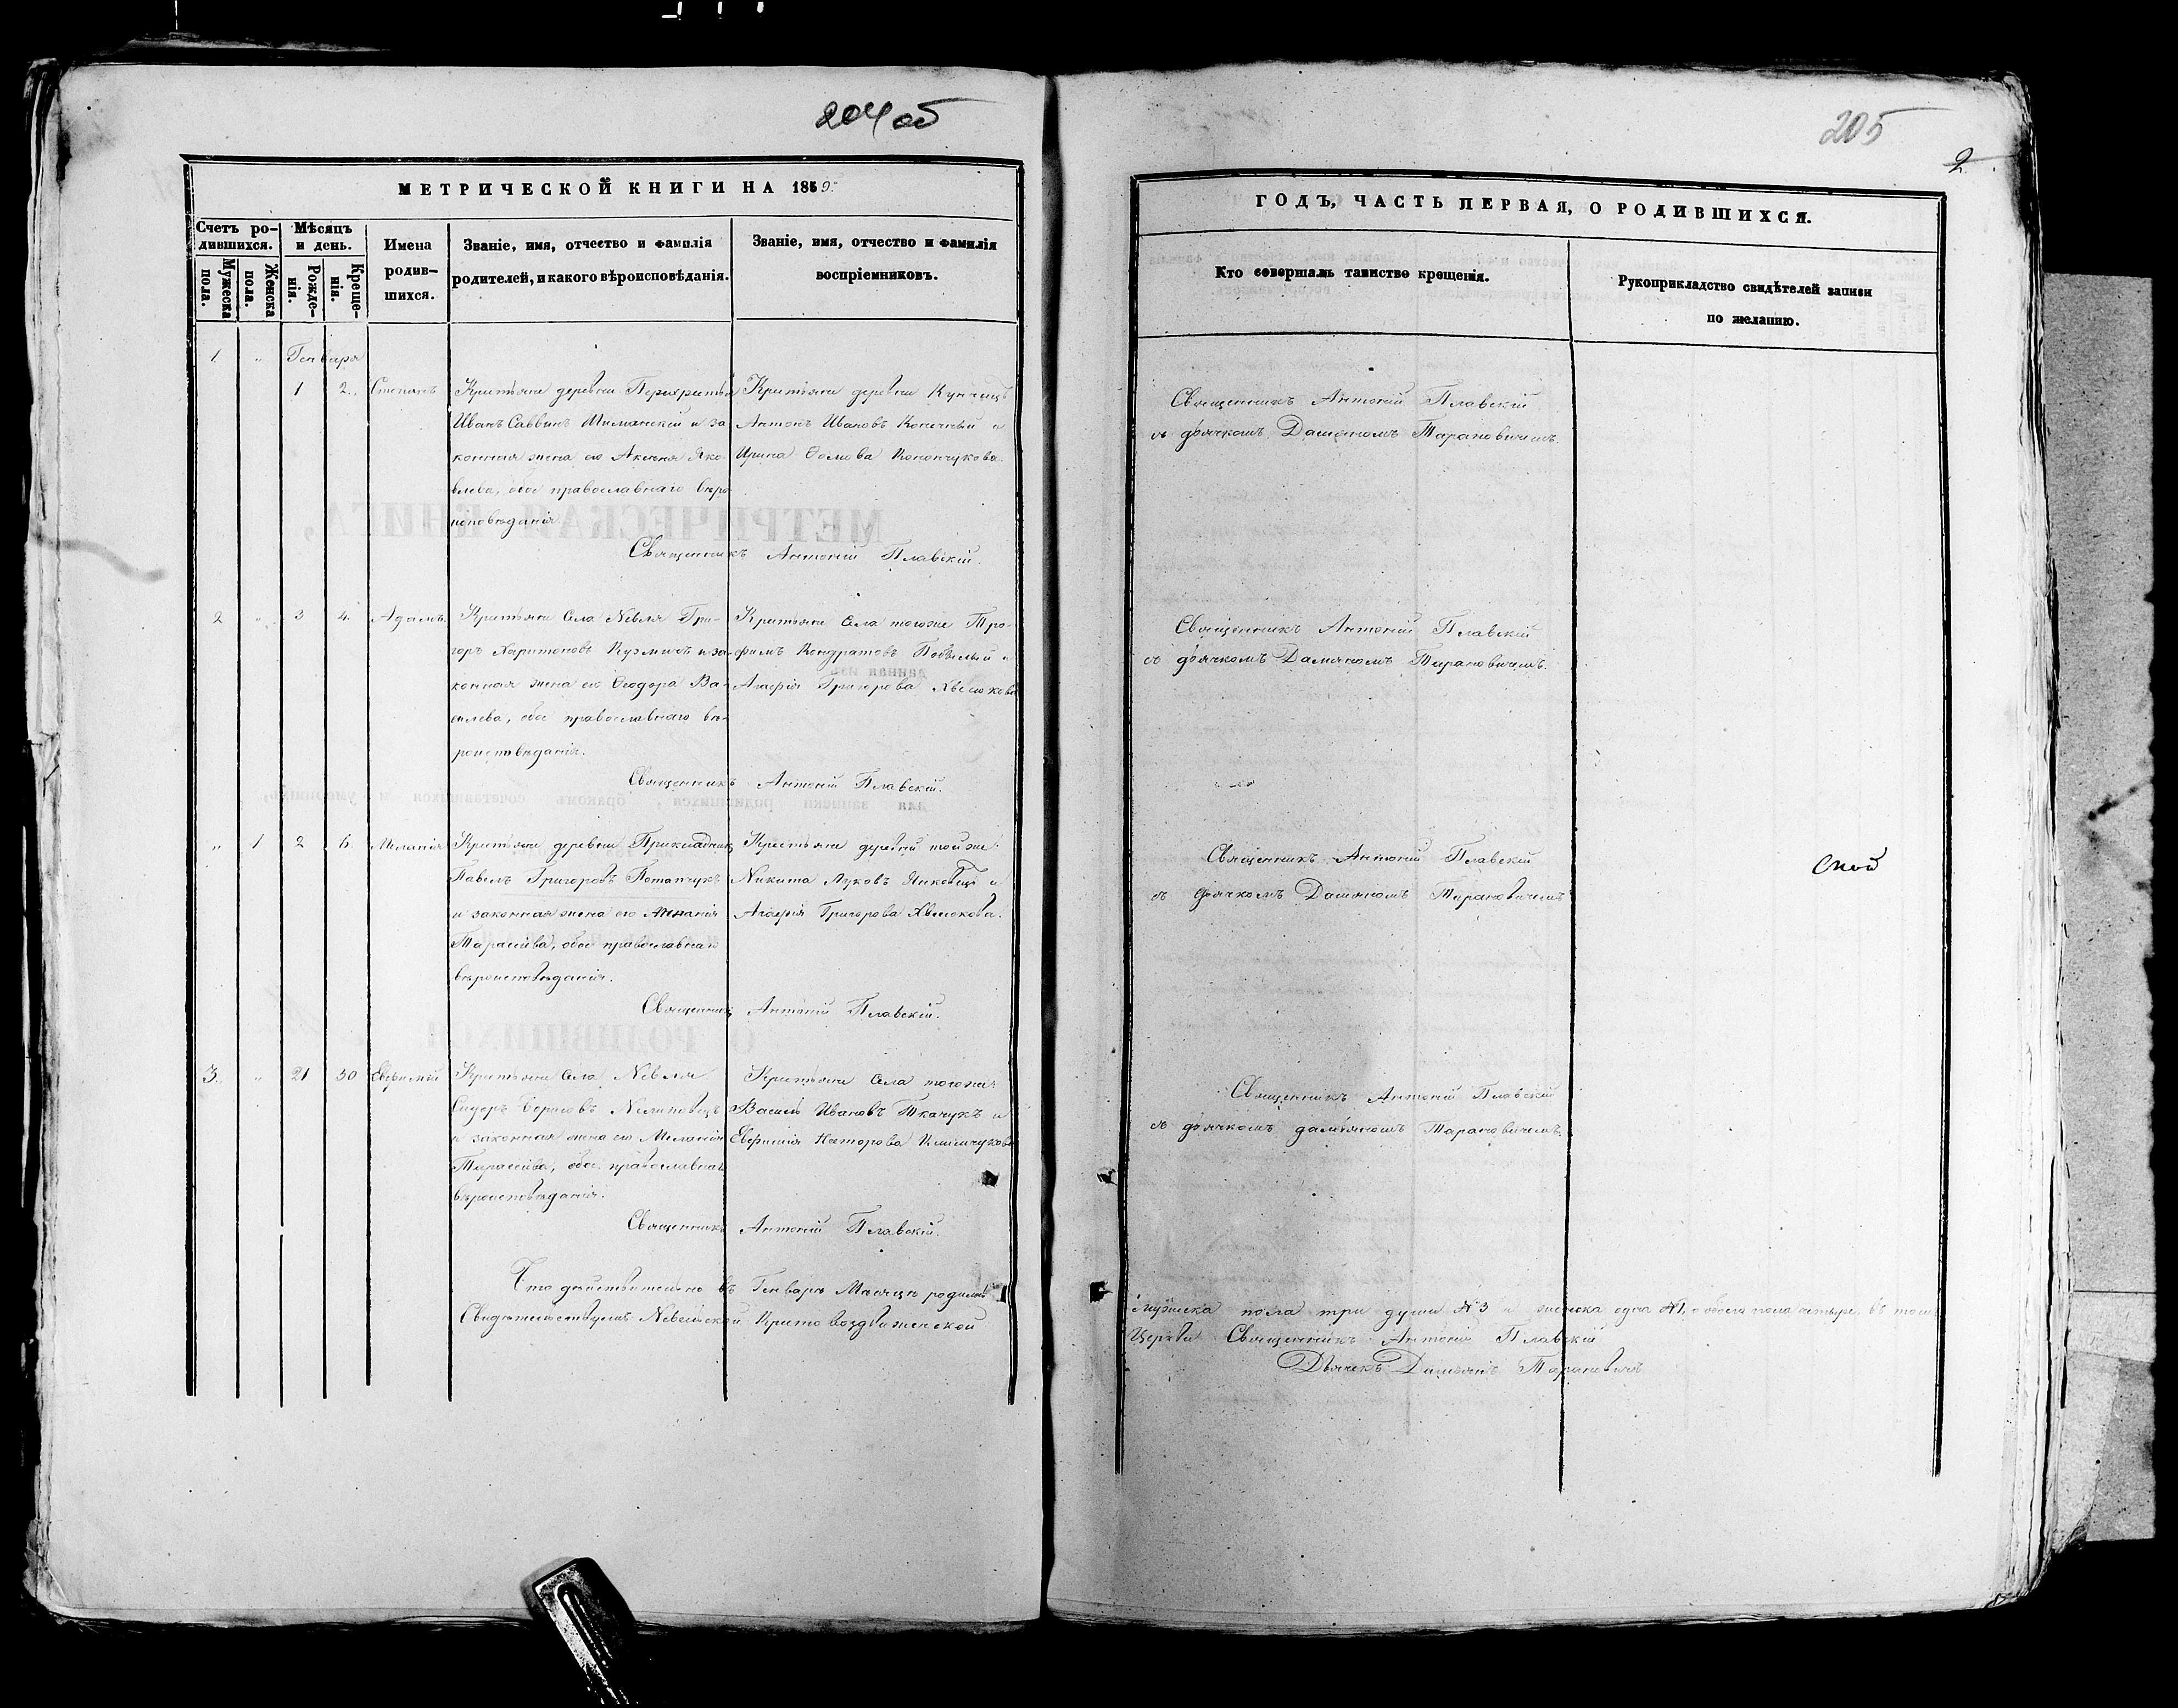 204 об
МЕТРИЧЕСКОЙ КНИГИ НА 1859.
Счетъ родившихся.
Мужеска пола.
Женска пола.
Мѣсяцъ и день.
Рожденія.
Крещенія.
Имена родившихся.
Званіе, имя, отчество и фамилія
родителей, и какого вѣроисповѣданія.
Званіе, имя, отчество и фамилія
воспріемниковъ.
1. " Генваря
1 2. Степанъ
Крестьяне деревни
Иванъ Саввинъ Шиманскій и за
конная жена его Аксенія Яко-
влева, обое православнаго вѣро
исповѣданія
Крестьяне деревни
Антонъ Ивановъ и
Ирина
Священникъ Антоній Плавскій.
2 " 3 4. Адамъ.
Крестьяне Села Невля Гри-
горъ Харитоновъ Кузмичъ и за-
конная жена его Ѳеодора Ва-
силева, обое православнаго вѣ-
роисповѣданія.
Крестьяне Села тогоже Тро-
фимъ Кондратовъ и
Агафія Григорова Хвесюкова
Священникъ Антоній Плавскій.
" 1 2 6. Меланія
Крестьяне деревни Прикладник
Павелъ Григоровъ Потапчукъ
и законная жена его
Тарасіева, обое православнаго
вѣроисповѣданія.
Крестьяне деревни тойже
Никита Луковъ и
Агафія Григорова Хвесюкова.
Священникъ Антоній Плавскій.
3. " 21 30 Евфимій
Крестьяне Села Невля
Сидоръ
и законная жена его Меланія
Тарасіева, обое православнаго
вѣроисповѣданія.
Крестьяне Села тогоже
Василь Ивановъ Ткачукъ и
Евфимія Несторова Климчукова
Священникъ Антоній Плавскій.
Что дѣйствительно въ Генварѣ Мѣсяцѣ родилось
Свидѣтельствуемъ Невельской Кресто воздвиженской
205
2
ГОДЪ, ЧАСТЬ ПЕРВАЯ, О РОДИВШИХСЯ.
Кто совершалъ таинство крещенія.
Рукоприкладство свидѣтелей записи
по желанію.
Священникъ Антоній Плавскій
съ дьячкомъ Даміяномъ Тарановичемъ.
Священникъ Антоній Плавскій
съ дьячкомъ Даміяномъ Тарановичемъ.
Священникъ Антоній Плавскій
съ дьячкомъ Даміяномъ Тарановичемъ
Священникъ Антоній Плавскій
съ дьячкомъ даміяномъ Тарановичемъ.
мужеска пола три души № 3 и женска одна №1, а обоего пола четыре, въ томъ
Церкви Священникъ Антоній Плавскій
Дьячекъ Даміянъ Тарановичъ